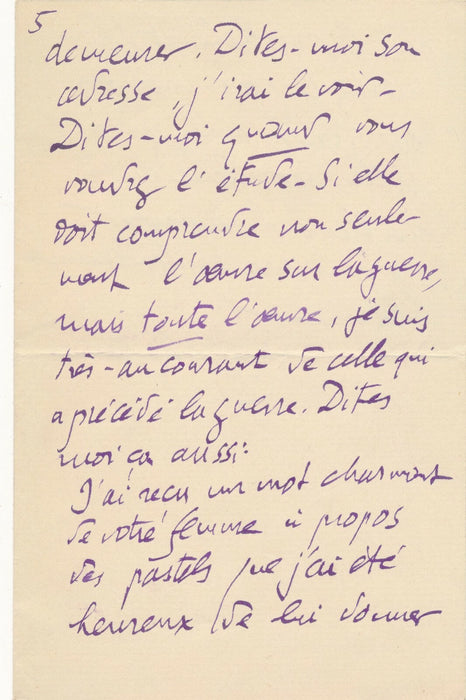 5
demeurer. Dites-moi son
adresse, j'irai le voir -
Dites-moi quand vous
voudrez l'étude - Si elle
doit comprendre non seule-
ment l'œuvre sur la guerre,
mais toute l'œuvre, je suis
très-au courant de celle qui
a précédé la guerre. Dites
moi ça aussi.
J'ai reçu un mot charmant
de votre femme à propos
des pastels que j'ai été
heureux de lui donner